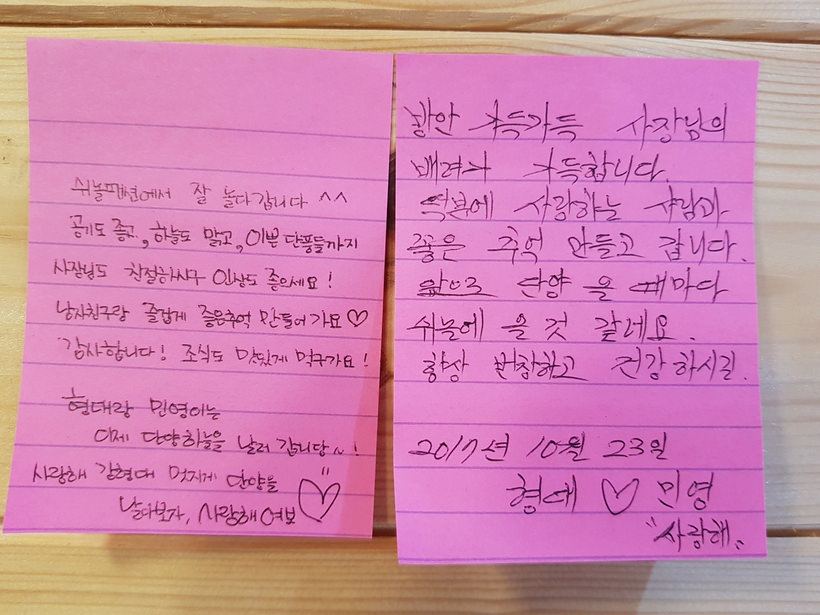 쉬놀펜션에서 잘 놀다갑니다 ^^
공기도 좋고, 하늘도 맑고, 이쁜 단풍들까지
사장님도 친절하시구 인상도 좋으세요!
남자친구랑 즐겁게 좋은추억 만들어가요♡
감사합니다! 조식도 맛있게 먹구가요!
형대랑 민영이는
이제 단양하늘을 날러 갑니당~!
사랑해 강형대 멋지게 단양을
날아보자, 사랑해여보 ♡
방안 가득가득 사장님의
배려가 가득합니다.
덕분에 사랑하는 사람과
좋은 추억 만들고 갑니다.
앞으로 단양 올 때마다
쉬놀에 올 것 같네요.
항상 번창하고 건강하시길.
2017년 10월 23일
형대 ♡ 민영
"사랑해"